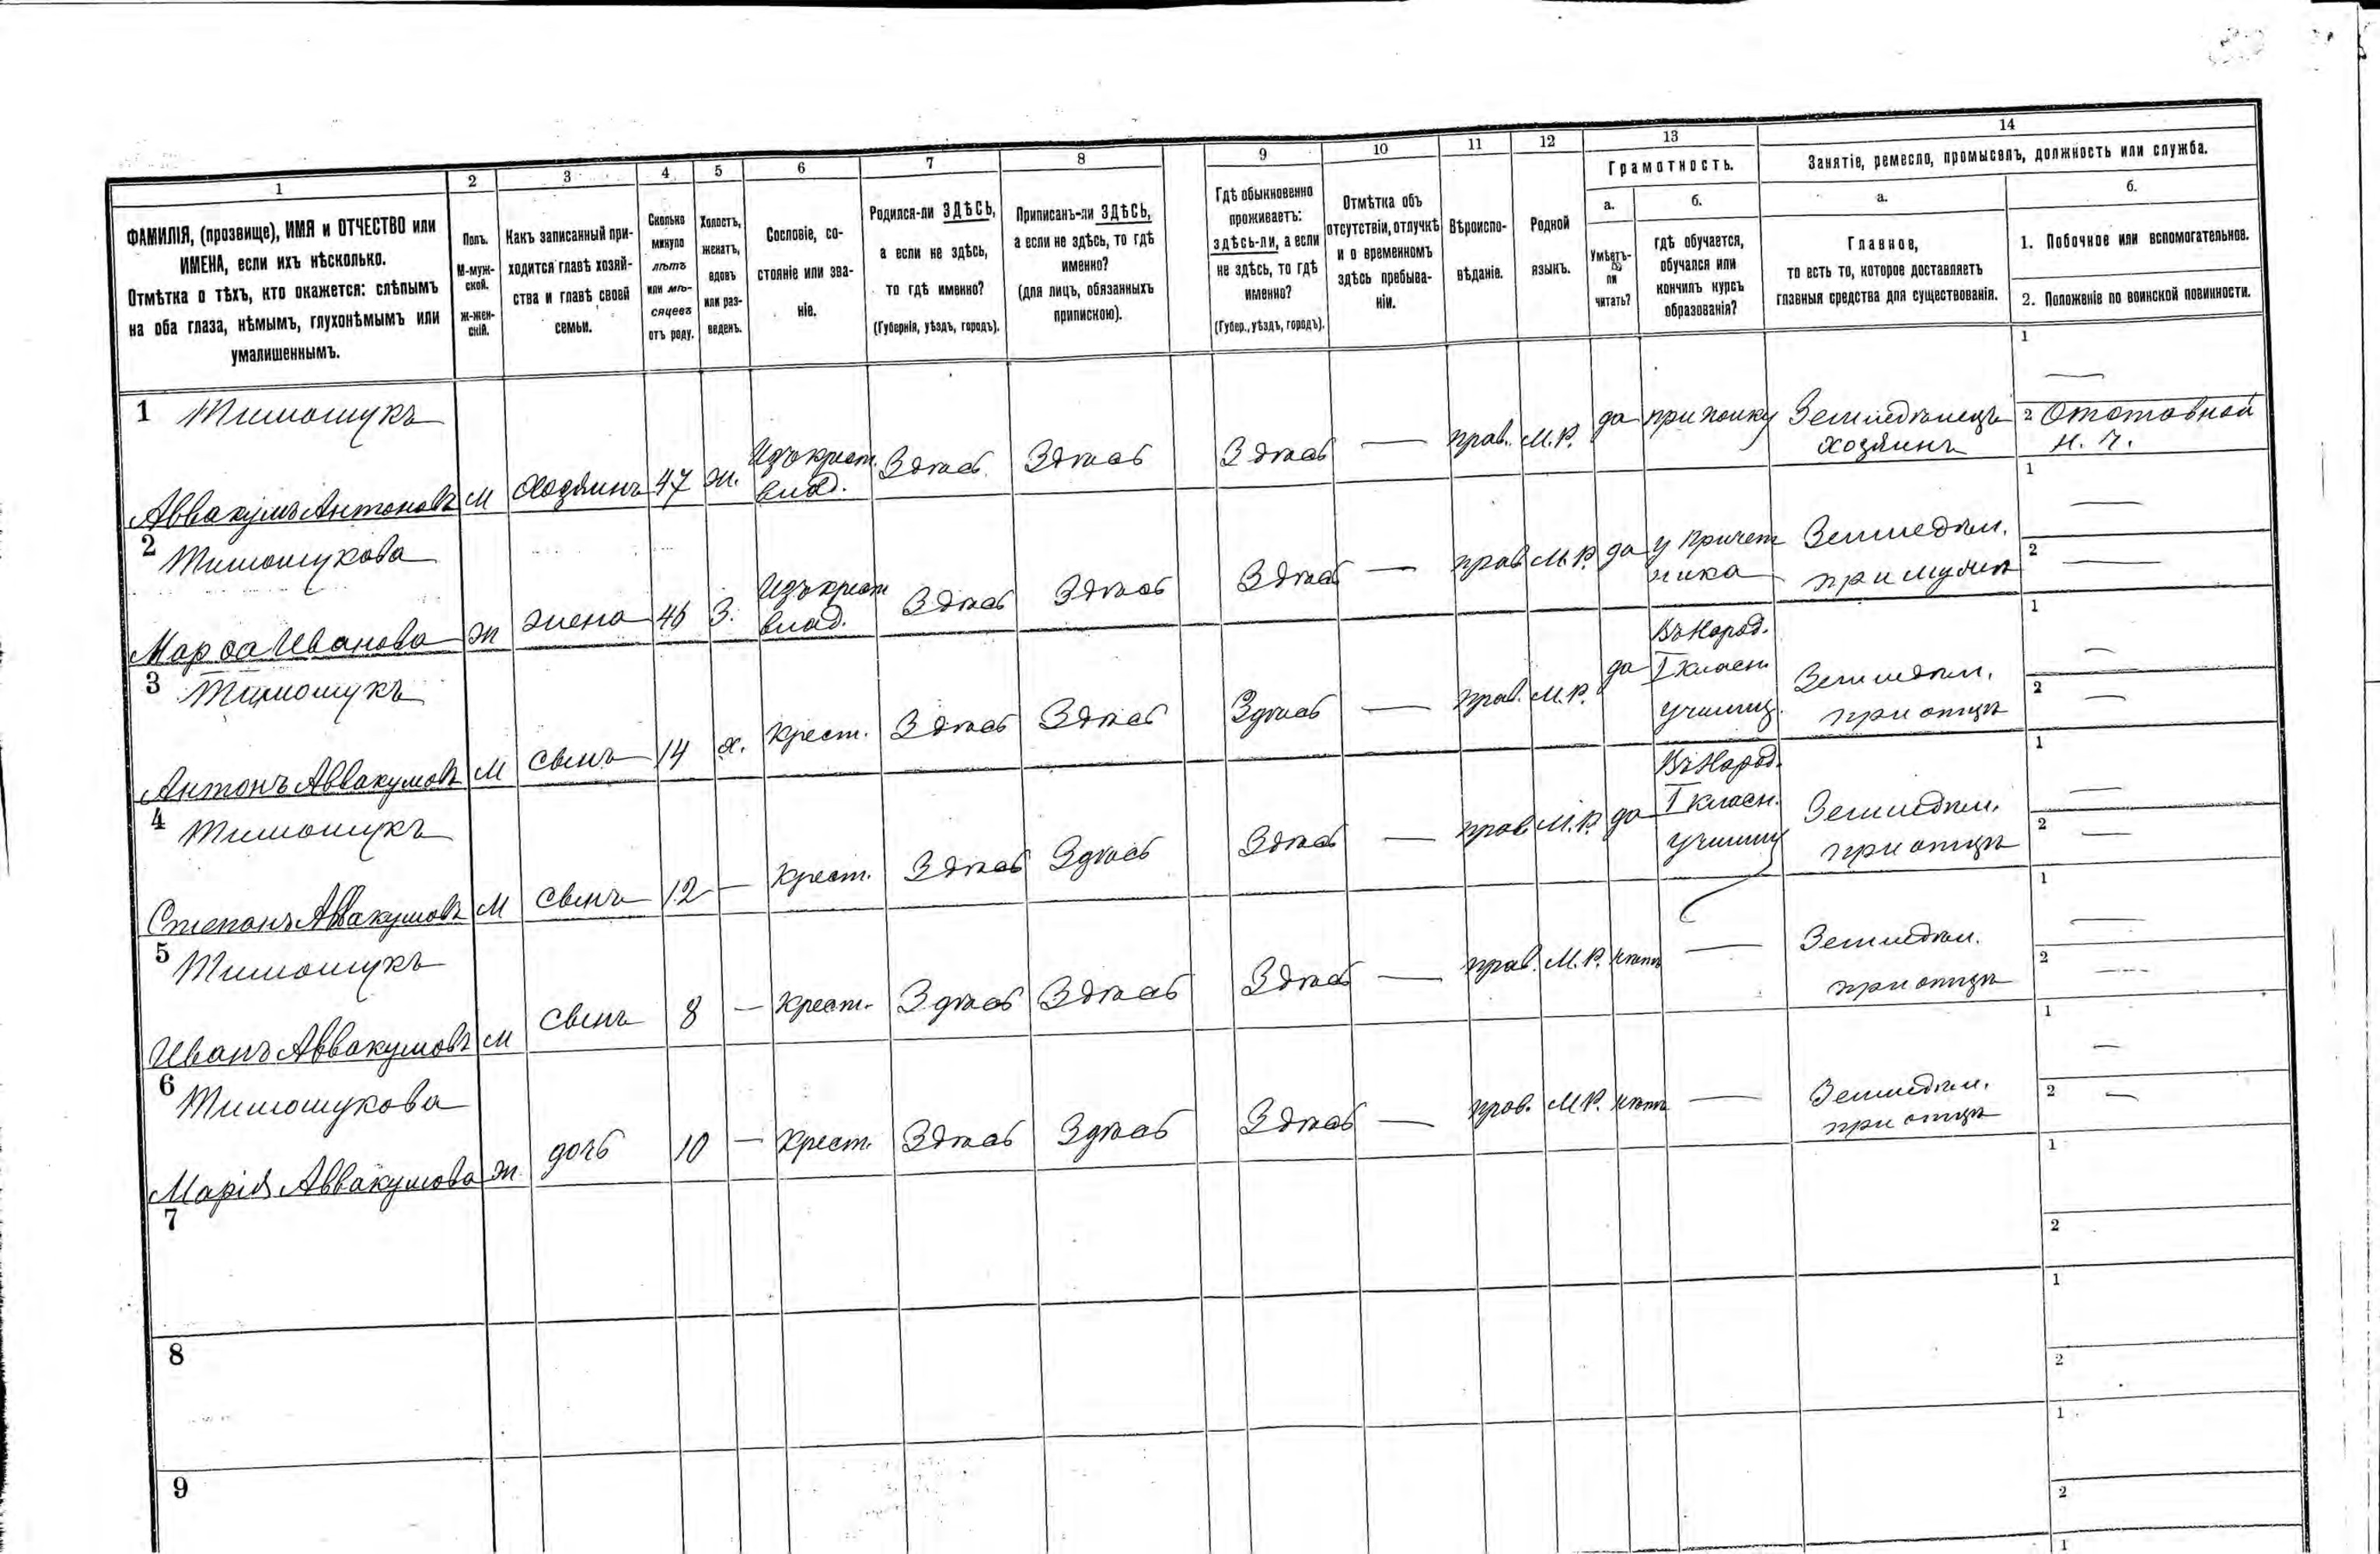 1
2
3
4
5
6
7
8
9
10
11
12
13
14
ФАМИЛІЯ, (прозвище), ИМЯ и ОТЧЕСТВО или
ИМЕНА, если ихъ нѣсколько.
Отмѣтка о тѣхъ, кто окажется: слѣпымъ
на оба глаза, нѣмымъ, глухонѣмымъ или
умалишеннымъ.
Полъ.
М-муж-
ской.
Ж-жен-
скій.
Какъ записанный при-
ходится главѣ хозяй-
ства и главѣ своей
семьи.
Сколько
минуло
лѣтъ
или мѣ-
сяцевъ
отъ роду.
Холостъ,
женатъ,
вдовъ
или раз-
веденъ.
Сословіе, со-
стояніе или зва-
ніе.
Родился-ли ЗДѢСЬ,
а если не здѣсь,
то гдѣ именно?
(Губернія, уѣздъ, городъ).
Приписанъ-ли ЗДѢСЬ,
а если не здѣсь, то гдѣ
именно?
(для лицъ, обязанныхъ
припискою).
Гдѣ обыкновенно
проживаетъ:
здѣсь-ли, а если
не здѣсь, то гдѣ
именно?
(Губер., уѣздъ, городъ).
Отмѣтка объ
отсутствіи, отлучкѣ
и о временномъ
здѣсь пребыва-
ніи.
Вѣроиспо-
вѣданіе.
Родной
языкъ.
Грамотность.
а.
Умѣетъ-
ли
читать?
б.
гдѣ обучается,
обучался или
кончилъ курсъ
образованія?
Занятіе, ремесло, промыселъ, должность или служба.
а.
Главное,
то есть то, которое доставляетъ
главныя средства для существованія.
б.
1. Побочное или вспомогательное.
2. Положеніе по воинской повинности.
1 Тимощукъ
Аввакумъ Антоновъ
М
Хозяинъ
47
Ж.
Изъ крест.
влад.
Здѣсь
Здѣсь
Здѣсь
—
прав.
М.Р.
да
при полку
Земледѣлецъ
хозяинъ
1 —
2 Отставной
н. ч.
2
Тимощукова
Марѳа Иванова
Ж
жена
46
З.
Изъ крест
влад.
Здѣсь
Здѣсь
Здѣсь
—
прав
М.Р.
да
у причет
ника
Земледѣл.
при мужѣ
1 —
2 —
3 Тимощукъ
Антонъ Аввакумовъ
М
сынъ
14
х.
Крест.
Здѣсь
Здѣсь
Здѣсь
—
прав.
М.Р.
да
Въ Народ.
I класн.
училищ.
Земледѣл.
при отцѣ
1 —
2 —
4 Тимощукъ
Степанъ Аввакумовъ
М
сынъ
12
—
Крест.
Здѣсь
Здѣсь
Здѣсь
—
прав
М.Р.
да
Въ Народ.
I класн.
училищ
Земледѣл.
при отцѣ
1 —
2 —
5 Тимощукъ
Иванъ Аввакумовъ
М
сынъ
8
—
Крест.
Здѣсь
Здѣсь
Здѣсь
—
прав.
М.Р.
нѣтъ
—
Земледѣл.
при отцѣ
1 —
2 —
6 Тимощукова
Марія Аввакумова
Ж.
дочь
10
—
Крест.
Здѣсь
Здѣсь
Здѣсь
—
прав.
М.Р.
нѣтъ
—
Земледѣл.
при отцѣ
1 —
2 —
7
1
2
8
1
2
9
1
2
1